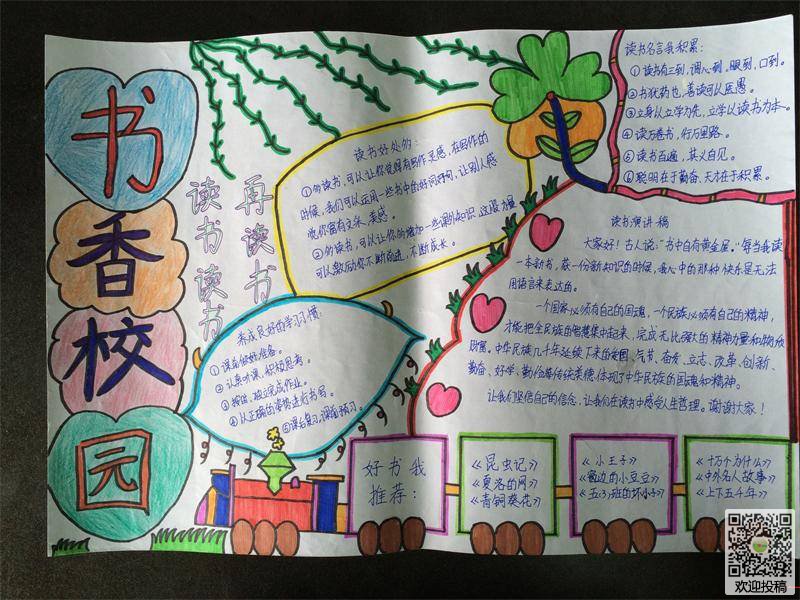 书
香
校
园
读书读书
再读书
读书好处的:
①多读书,可以让你觉得有写作灵感,在写作的
时候,我们可以运用一些书中的好词好句,让别人感
觉你富有文采,美感。
②多读书,可以让你多增加一些课外知识
可以激励你不断前进,不断成长。
养成良好的学习习惯:
①课前做好准备。
②认真听课,积极思考。
③按时、独立完成作业。
④以正确的姿势进行书写。
⑤课后复习,课前预习。
读书名言我积累:
①读书有三到,谓心到,眼到,口到。
②书犹药也,善读可以医愚。
③立身以立学为先,立学以读书为本。
④读万卷书,行万里路。
⑤读书百遍,其义自见。
⑥聪明在于勤奋,天才在于积累。
读书演讲稿
大家好!古人说:"书中自有黄金屋。"每当我读
一本新书,获一份新知识的时候,我心中的那种快乐是无法
用语言来表达的。
一个国家必须有自己的国魂,一个民族必须有自己的精神,
才能把全民族的智慧集中起来,完成无比强大的精神力量和物质
财富。中华民族几千年延续下来的爱国、气节、奋发、立志、改革、创新、
勤奋、好学、勤俭等传统美德,体现了中华民族的国魂和精神。
让我们坚信自己的信念,让我们在读书中感受人生哲理。谢谢大家!
好书我
推荐:
《昆虫记》
《夏洛的网》
《青铜葵花》
《小王子》
《窗边的小豆豆》
《五(3)班的坏小子》
《十万个为什么》
《中外名人故事》
《上下五千年》
欢迎投稿